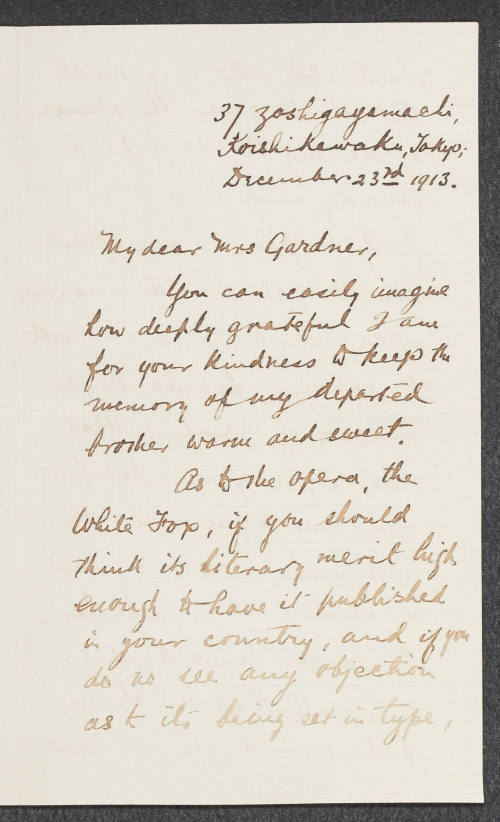 37 Zoshigayamachi,
Koishikawaku, Tokyo;
December 23rd 1913.
My dear Mrs Gardner,
You can easily imagine
how deeply grateful I am
for your kindness to keep the
memory of my departed
brother warm and sweet.
As to the opera, the
White Fox, if you should
think its literary merit high
enough to have it published
in your country, and if you
do no see any objection
as to its being set in type,